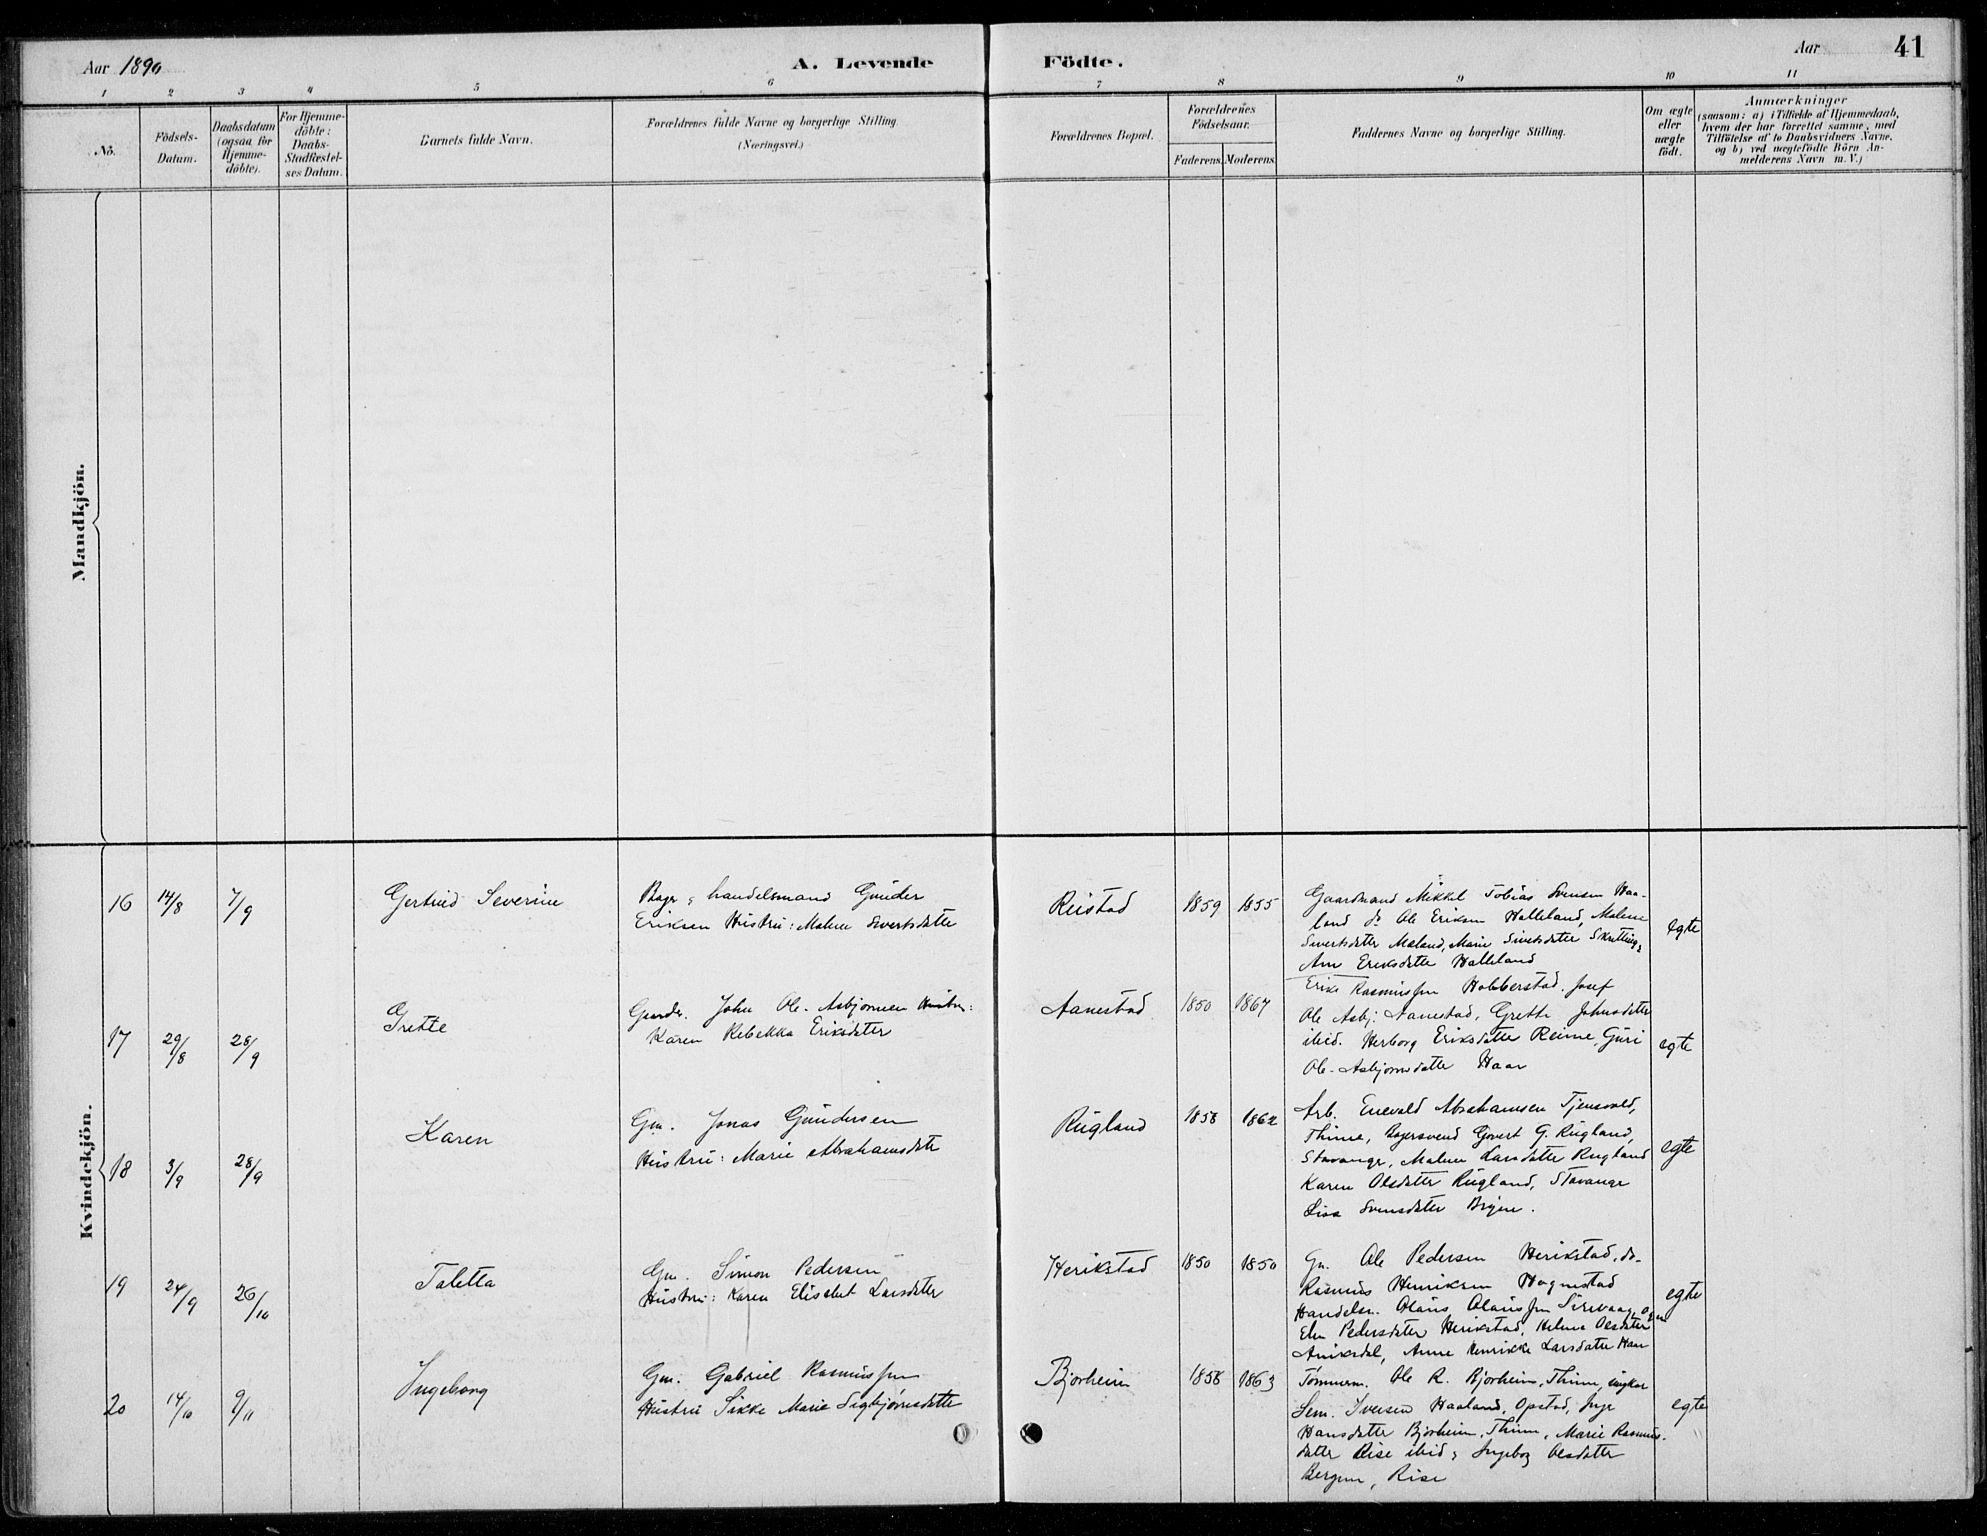 Aar 1890
A. Levende
Födte.
Aar
41
1
2
3
4
5
6
7
8
9
10
11
No.
Födsels-
Datum.
Daabsdatum
(ogsaa for
Hjemme-
döbte).
For Hjemme-
döbte:
Daabs-
Stadfestel-
ses Datum.
Barnets fulde Navn.
Forældrenes fulde Navne og borgerlige Stilling.
(Næringsvei.)
Forældrenes Bopæl.
Forældrenes
Födselsaar.
Faderens.
Moderens.
Faddernes Navne og borgerlige Stilling.
Om ægte
eller
uægte
födt.
Anmærkninger
(saasom: a) i Tilfælde af Hjemmedaab,
hvem der har forrettet samme, med
Tilföielse af to Daabsvidners Navne.
og b) ved uægtefödte Börn An-
melderens Navn m. V.)
Mandkjön.
Kvindekjön.
16
14/8
7/9
Gertrud Severine
Bager & handelsmand Gunder
Eriksen Hustru: Malene Sivertsdatter
Rüstad
1859
1855
Gaardmand Mikkel Tobias Svensen Haa-
land do Ole Eriksen Halleland, Malene
Sivertsdatter Maland, Marie Sivertsdatter Skretting &
Ane Eriksdatter Halleland
egte
17
29/8
28/9
Grette
John Ole. Asbjornsen Hustru:
Karen Rebekka Eriksdatter
Aanestad
1850
1867
Erik Rasmussen Hobberstad. Josef
Ole Asbj. Aanestad, Grethe Johnsdatter
ibid. Herborg Eriksdatter Reime, Guri
Ole-Asbjornsdatter Haar
egte
18
3/9
28/9
Karen
Gm. Jonas Gundersen
Hustru: Marie Abrahamsdatter
Rugland
1858
1862
Arb. Enevald Abrahamsen Tjensvold,
Thime, Bagersvend Govert G. Rugland,
Stavanger, Malene Larsdatter Rugland
Karen Olsdatter Rugland, Stavanger
Lisa Svensdatter
egte
19
24/9
26/10
Taletta
Gm. Simon Pedersen
Hustru: Karen Elisabet Larsdatter
Herikstad
1850
1850
Gm. Ole Pedersen Herikstad, do
Rasmus Henriksen Hognestad
Handelsm. Olaus Olaussen Sirevaag, Ogne
Elen Pedersdatter Herikstad, Helene Olsdatter
Aniksdal, Anne Henrikke Larsdatter Haar
egte
20
14/10
9/11
Ingeborg
Gm. Gabriel Rasmussen
Hustru Sikke Marie Sigbjørnsdatter
Bjorheim
1858
1863
Tømmerm. Ole R. Bjorheim, Thime, ungkar
Sem. Iversen Haaland, Opstad, Inge
Hansdatter Bjorheim, Thime, Marie Rasmus-
datter Rise ibid & Ingebor Olsdatter
Rise
egte